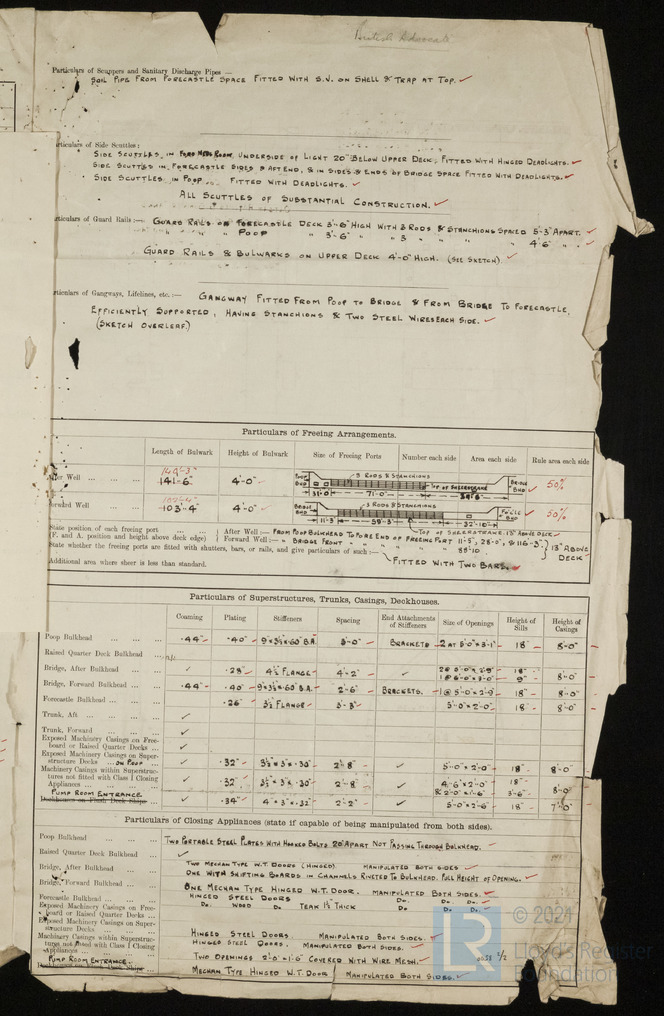 British Advocate
Particulars of Scuppers and Sanitary Discharge Pipes —
SOIL PIPE FROM FORECASTLE SPACE FITTED WITH S.V. ON SHELL & TRAP AT TOP.
articulars of Side Scuttles:
SIDE SCUTTLES IN UNDERSIDE OF LIGHT 20" BELOW UPPER DECK, FITTED WITH HINGED DEADLIGHTS.
SIDE SCUTTLES IN FORECASTLE SIDES & AFT END, & IN SIDES & ENDS OF BRIDGE SPACE FITTED WITH DEADLIGHTS.
SIDE SCUTTLES IN POOP FITTED WITH DEADLIGHTS.
ALL SCUTTLES OF SUBSTANTIAL CONSTRUCTION.
rticulars of Guard Rails :— GUARD RAILS ON FORECASTLE DECK 3'-6" HIGH WITH 3 RODS & STANCHIONS SPACED 5'-3" APART.
" " " POOP " 3'-6" " " 3 " " " 4'-6" "
GUARD RAILS & BULWARKS ON UPPER DECK 4'-0" HIGH. (SEE SKETCH).
rticulars of Gangways, Lifelines, etc. :— GANGWAY FITTED FROM POOP TO BRIDGE & FROM BRIDGE TO FORECASTLE,
EFFICIENTLY SUPPORTED, HAVING STANCHIONS & TWO STEEL WIRES EACH SIDE.
(SKETCH OVERLEAF.)
Particulars of Freeing Arrangements.
Length of Bulwark Height of Bulwark Size of Freeing Ports Number each side Area each side Rule area each side
fter Well 141'-6" 4'-0" POOP BHD 3 RODS & STANCHIONS TOP OF SHEERSTRAKE BRIDGE BHD 50%
31'-0" 71'-0"
orward Well 103'-4" 4'-0" BRIDGE BHD 3 RODS & STANCHIONS 50%
11'-3" 59'-3" 32'-10"
TOP OF SHEERSTRAKE 13" ABOVE DECK
State position of each freeing port
(F. and A. position and height above deck edge)
After Well :— FROM POOP BULKHEAD TO FORE END OF FREEING PORT 11'-5", 28'-0", & 116'-3".
Forward Well :— " BRIDGE FRONT " " " " " 88'-10"
13" ABOVE DECK
State whether the freeing ports are fitted with shutters, bars, or rails, and give particulars of such :—
FITTED WITH TWO BARS.
Additional area where sheer is less than standard.
Particulars of Superstructures, Trunks, Casings, Deckhouses.
Coaming Plating Stiffeners Spacing End Attachments of Stiffeners Size of Openings Height of Sills Height of Casings
Poop Bulkhead .44" .40" 9"×3½"×.60" B.A. 3'-0" BRACKETS 2 AT 5'-0"×3'-1" 18" 8'-0"
Raised Quarter Deck Bulkhead
Bridge, After Bulkhead .28" 4½" FLANGE 4'-2" 2@ 5'-0"×2'-9" 18"
1@ 6'-0"×3'-0" 9" 8'-0"
Bridge, Forward Bulkhead .44" .40" 9"×3½"×.60" B.A. 2'-6" BRACKETS. 1@ 5'-0"×2'-9" 18" 8'-0"
Forecastle Bulkhead .26" 3½" FLANGE 3'-3" 5'-0"×2'-0" 18" 8'-0"
Trunk, Aft
Trunk, Forward
Exposed Machinery Casings on Free-
board or Raised Quarter Decks
Exposed Machinery Casings on Super-
structure Decks ON POOP .32" 3½"×3"×.30" 2'-8" 5'-0"×2'-0" 18" 8'-0"
Machinery Casings within Superstruc-
tures not fitted with Class I Closing
Appliances .32" 3½"×3"×.30" 2'-8" 4'-6"×2'-0" 18"
& 2'-0"×1'-6" 3'-6" 8'-0"
PUMP ROOM ENTRANCE
Deckhouses on Flush Deck Ships .34" 4"×3"×.32" 2'-2" 5'-0"×2'-6" 18" 7'-0"
Particulars of Closing Appliances (state if capable of being manipulated from both sides).
Poop Bulkhead TWO PORTABLE STEEL PLATES WITH HOOKED BOLTS 20" APART NOT PASSING THROUGH BULKHEAD.
Raised Quarter Deck Bulkhead
Bridge, After Bulkhead TWO MECHAN TYPE W.T. DOORS (HINGED) MANIPULATED BOTH SIDES
ONE WITH SHIFTING BOARDS IN CHANNELS RIVETED TO BULKHEAD. FULL HEIGHT OF OPENING.
Bridge, Forward Bulkhead ONE MECHAN TYPE HINGED W.T. DOOR. MANIPULATED BOTH SIDES.
Forecastle Bulkhead HINGED STEEL DOORS DO. DO. DO.
Exposed Machinery Casings on Free-
board or Raised Quarter Decks DO. WOOD DO. TEAK 1½" THICK DO. DO. DO.
Exposed Machinery Casings on Super-
structure Decks HINGED STEEL DOORS. MANIPULATED BOTH SIDES.
Machinery Casings within Superstruc-
tures not fitted with Class I Closing
Appliances HINGED STEEL DOORS. MANIPULATED BOTH SIDES.
TWO OPENINGS 2'-0"×1'-6" COVERED WITH WIRE MESH.
PUMP ROOM ENTRANCE.
Deckhouses on Flush Deck Ships MECHAN TYPE HINGED W.T. DOOR MANIPULATED BOTH SIDES.
0058 1/2
© 2021
LR
Lloyd's Register
Foundation